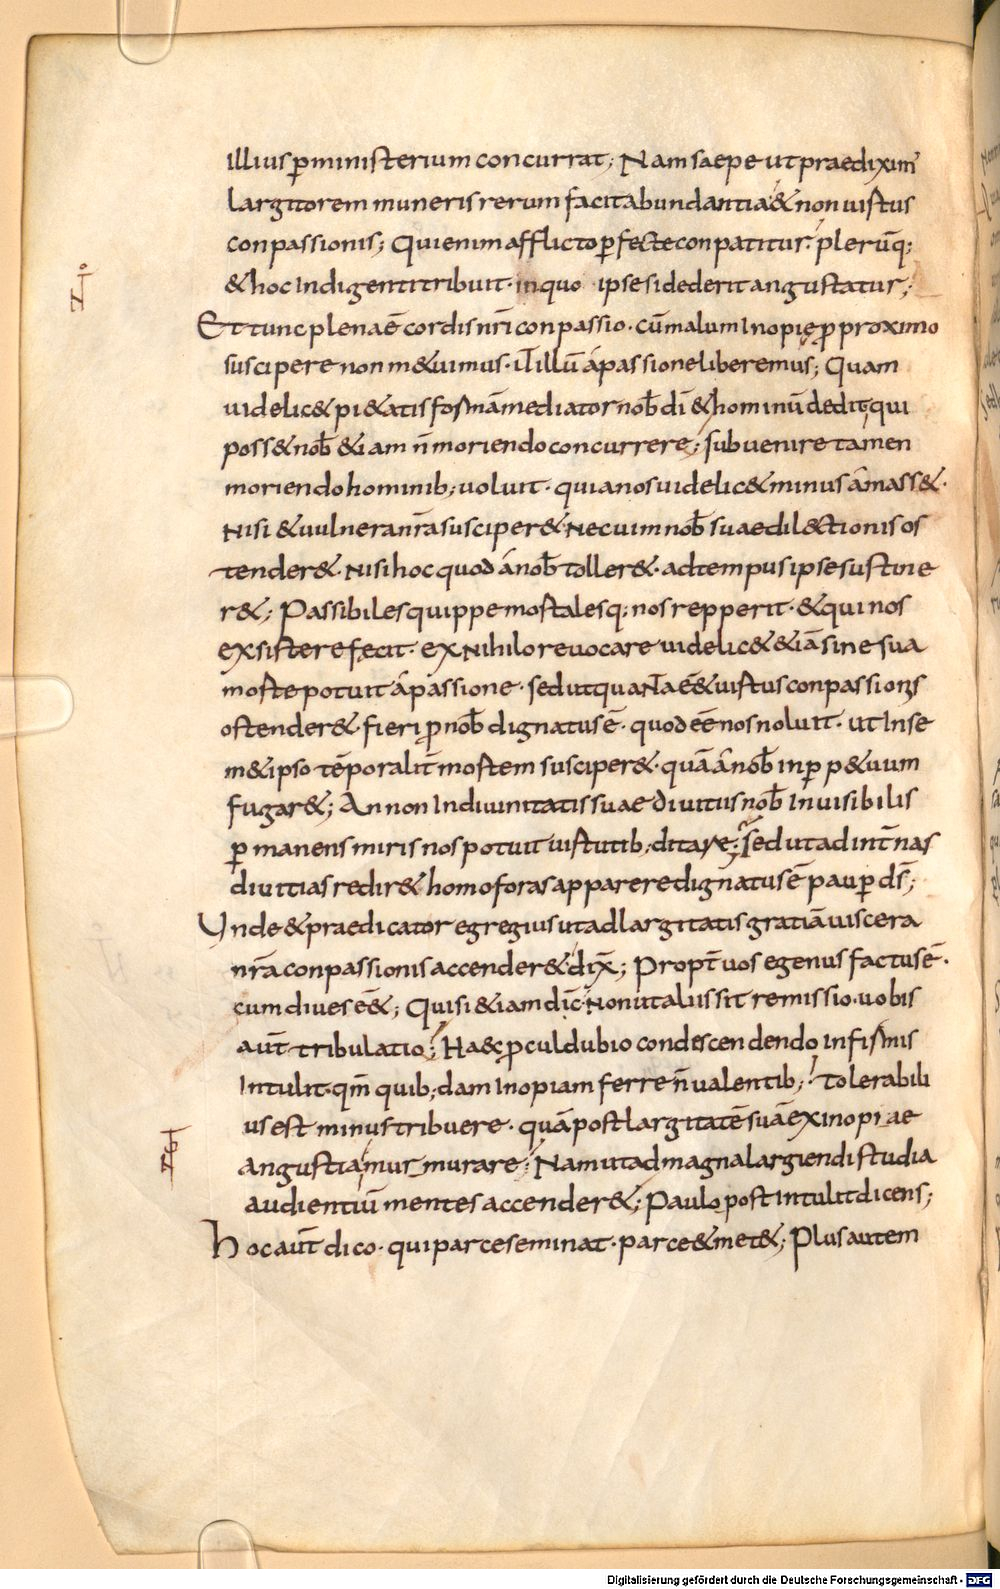 illius p̄ministerium concurrat; Nam saepe ut praediximꝰ
largitorem muneris rerum facit abundantia & non uirtus
conpassionis; Qui enim afflicto ꝑfecte conpatitur. pleruq̄;
& hoc Indigenti tribuit. in quo ipse si dederit angustatur;
Et tunc plena ē cordis nr̄i conpassio. cū malum Inopię ꝓ proximo
suscipere non m&uimus. ut illū á passione liberemus; Quam
uidelic& pi&atis formā mediator nob̄ dī & hominū dedit, qui
poss& nob̄ &iam n̄ moriendo concurrere; subuenire tamen
moriendo hominib; uoluit. quia nos uidelic& minus ámass&.
Nisi & uulnera nr̄a susciper&. Nec uim nob̄ suae dil&ctionis os
tender&. Nisi hoc quod á nob̄ toller&. ad tempus ipse sustine
r&; Passibiles quippe mortalesq; nos repperit. & qui nos
exsistere fecit. ex Nihilo reuocare uidelic& &iā sine sua
morte potuit á passione. sed ut quanta ē& uirtus conpassionis
ostender&. fieri ꝓ nob̄ dignatus ē. quod eē nos noluit. ut In se
m&ipso tēporalit̄ mortem susciper&. quā á nob̄ in ꝑp&uum
fugar&; An non In diuinitatis suae diuitiis nob̄ Inuisibilis
ꝑmanens miris nos potuit uirtutib; ditare; sed ut ad int̄nas
diuitias redir& homo foras apparere dignatus ē pauꝑ ds̄;
Unde & praedicator egregius ut ad largitatis gratiā uiscera
nr̄a conpassionis accender& dix̄; Propt̄ uos egenus factus ē.
cum diues eē&; Qui si &iam dic̄. Non ut aliis sit remissio. uobis
aut̄ tribulatio; Haec ꝓcul dubio condescendendo infirmis
Intulit. qm̄ quib;dam Inopiam ferre n̄ualentib; tolerabili
us est minus tribuere. quā post largitatē suā ex inopiae
angustia murmurare; Nam ut ad magna largiendi studia
audientiū mentes accender&; Paulo post Intulit dicens;
Hoc aut̄ dico. qui parce seminat. parce & met&; Plus autem
Digitalisierung gefördert durch die Deutsche Forschungsgemeinschaft - DFG